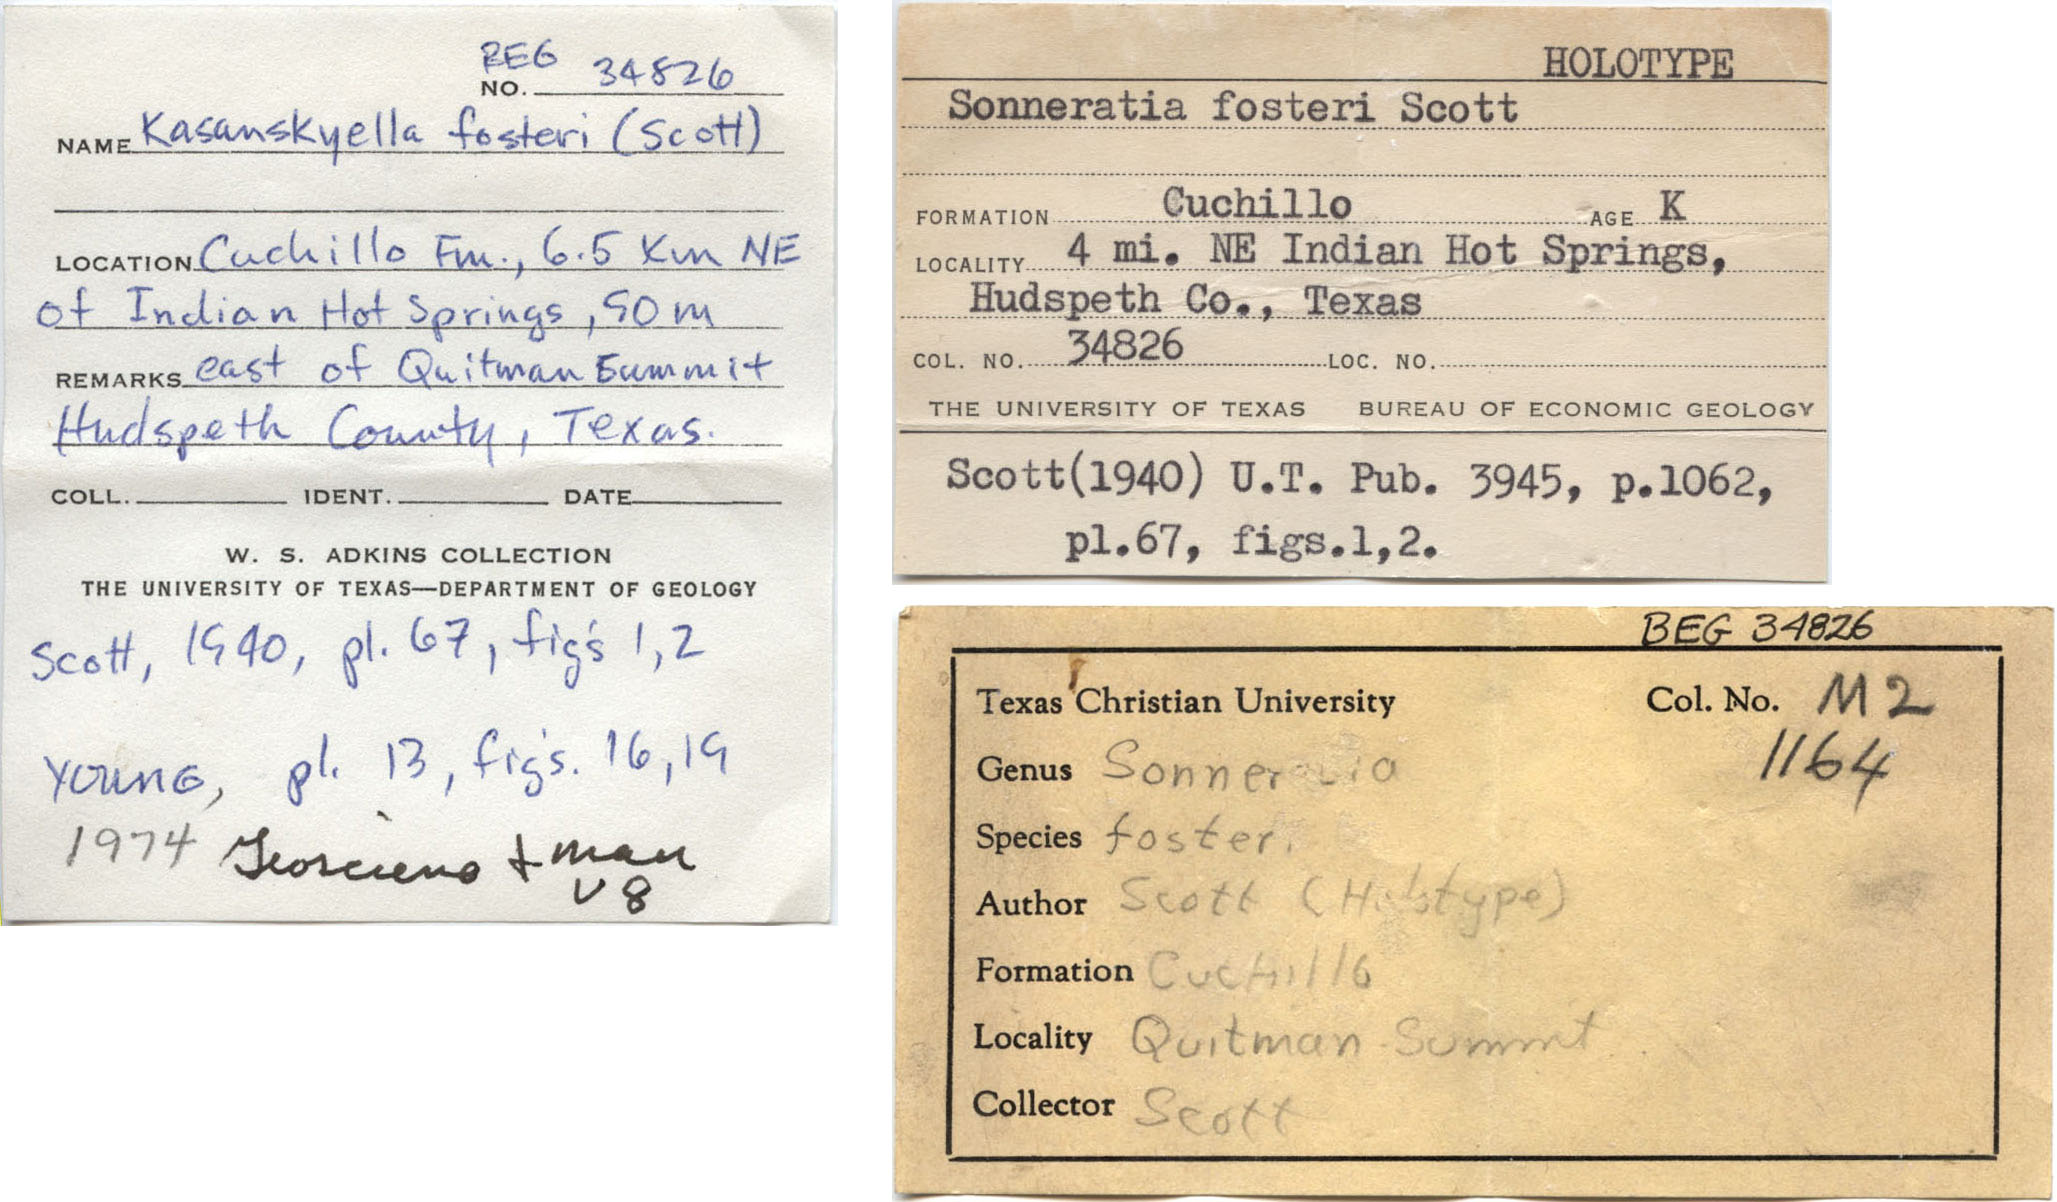 BEG
NO. 34826
NAME Kasanskyella fosteri (Scott)
LOCATION Cuchillo Fm., 6.5 Km NE
of Indian Hot Springs, 90 m
REMARKS east of Quitman Summit
Hudspeth County, Texas.
COLL. IDENT. DATE
W. S. ADKINS COLLECTION
THE UNIVERSITY OF TEXAS—DEPARTMENT OF GEOLOGY
Scott, 1940, pl. 67, fig's 1,2
YOUNG, pl. 13, fig's. 16,19
1974 Geoscience + man
V 8
HOLOTYPE
Sonneratia fosteri Scott
FORMATION Cuchillo AGE K
LOCALITY 4 mi. NE Indian Hot Springs,
Hudspeth Co., Texas
COL. NO. 34826 LOC. NO.
THE UNIVERSITY OF TEXAS BUREAU OF ECONOMIC GEOLOGY
Scott(1940) U.T. Pub. 3945, p.1062,
pl.67, figs.1,2.
BEG 34826
Texas Christian University Col. No. M2
1164
Genus Sonneratia
Species fosteri
Author Scott (Holotype)
Formation Cuchillo
Locality Quitman Summit
Collector Scott